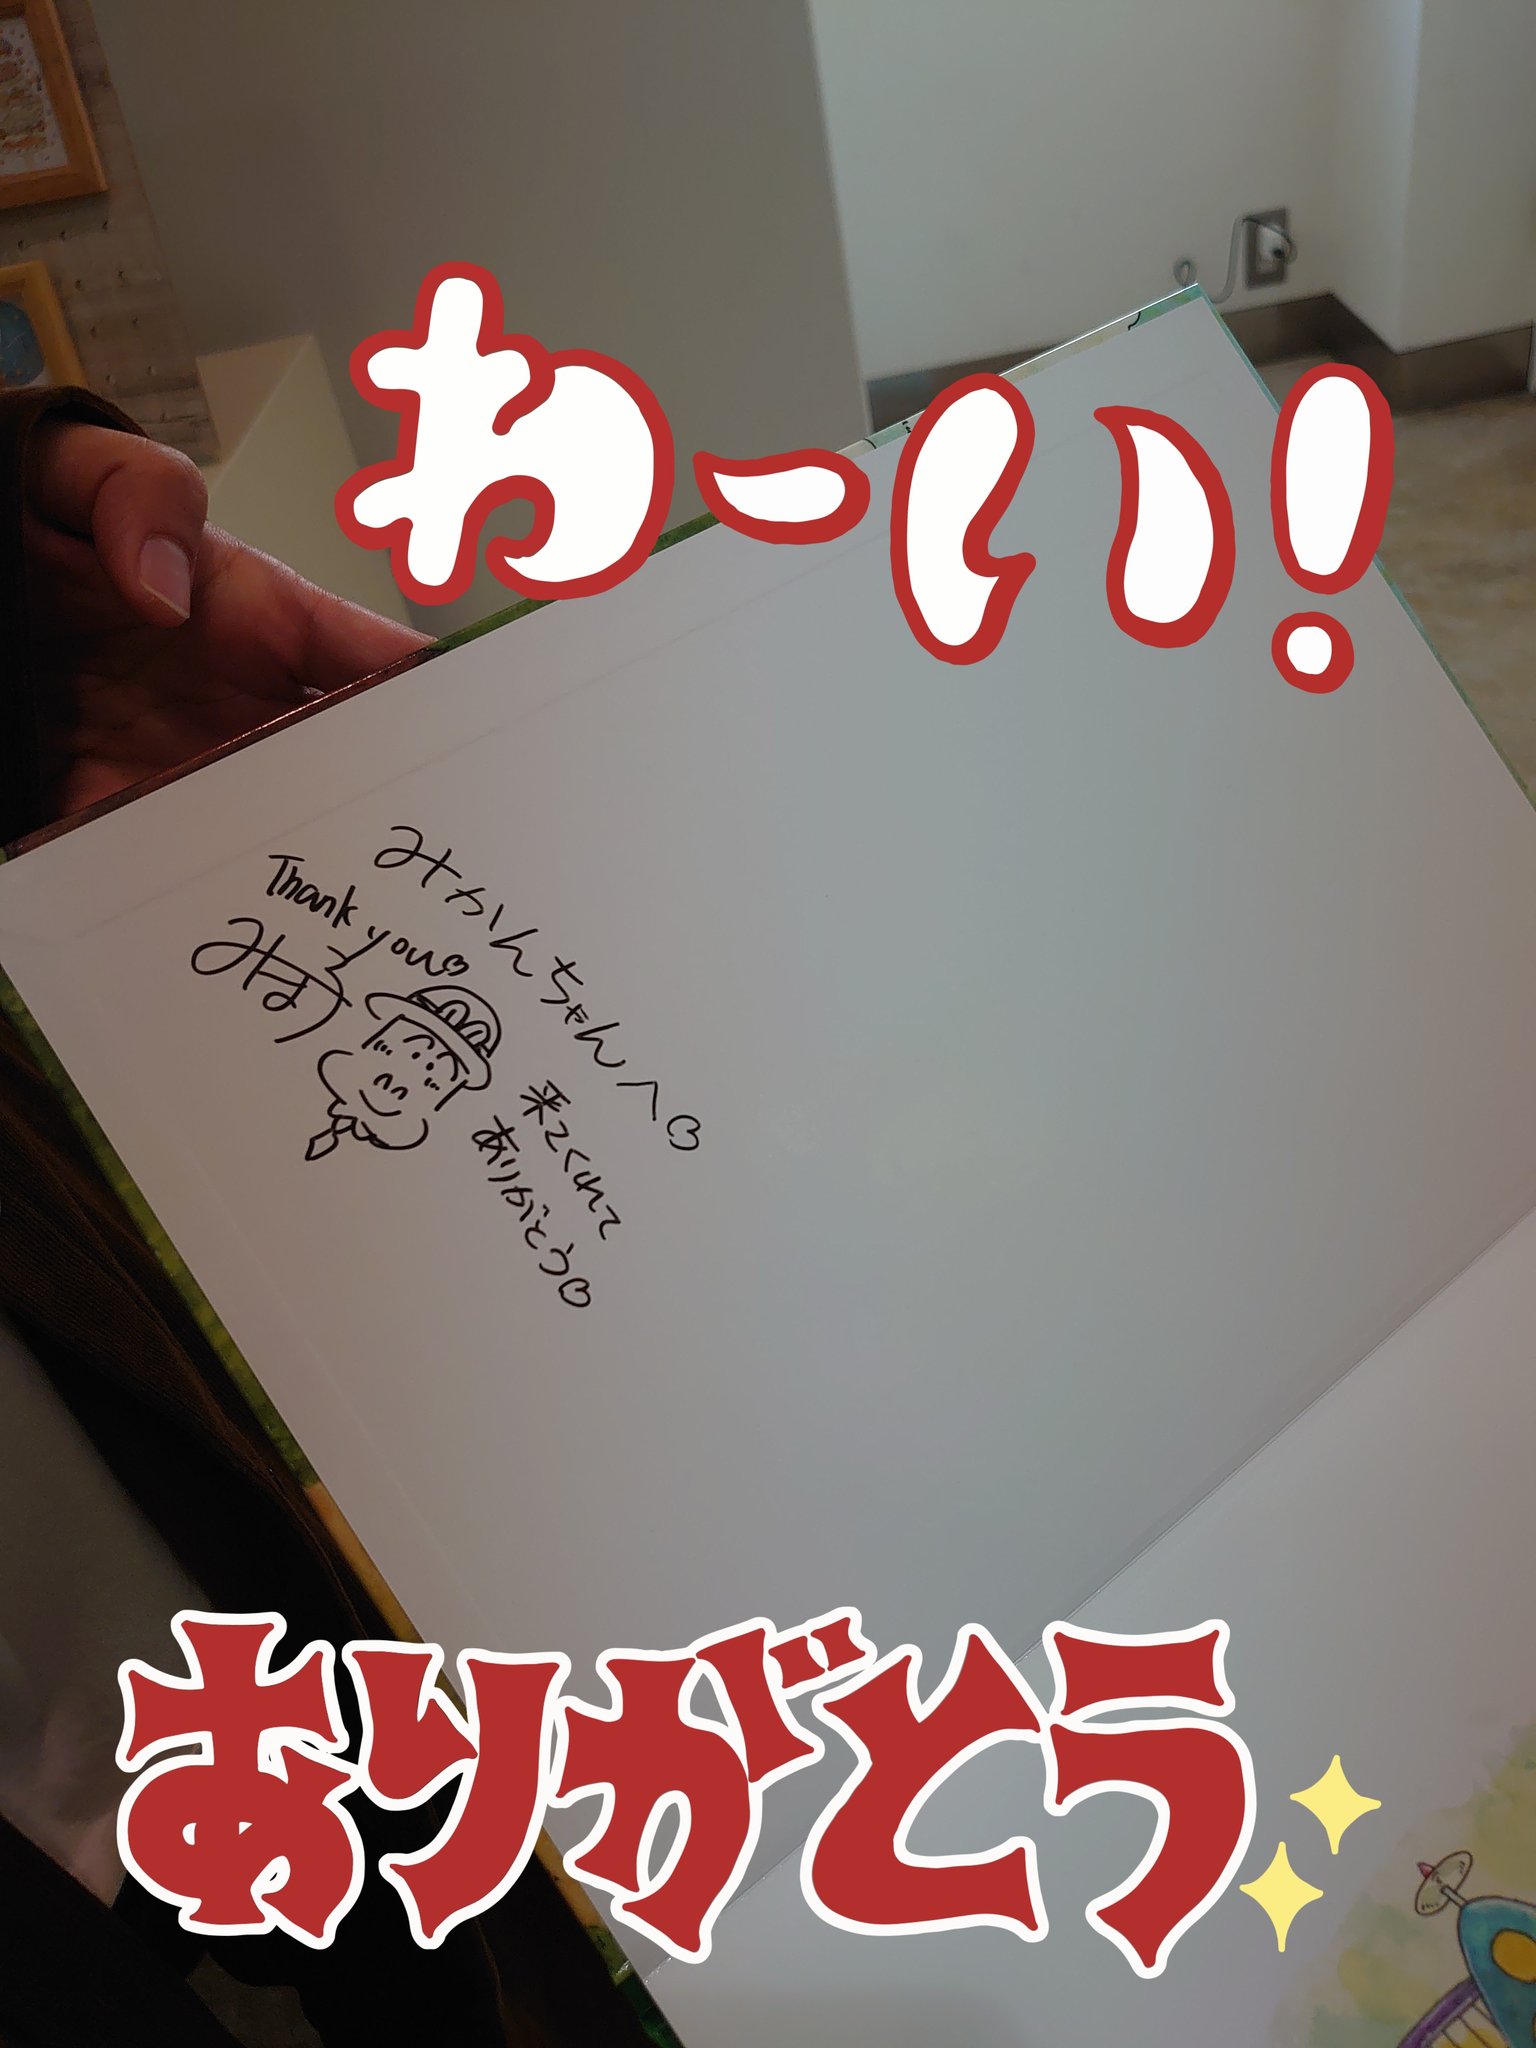 わーい!
みかんちゃんへ♡
Thank you♡
来てくれて
ありがとう♡
ありがとう